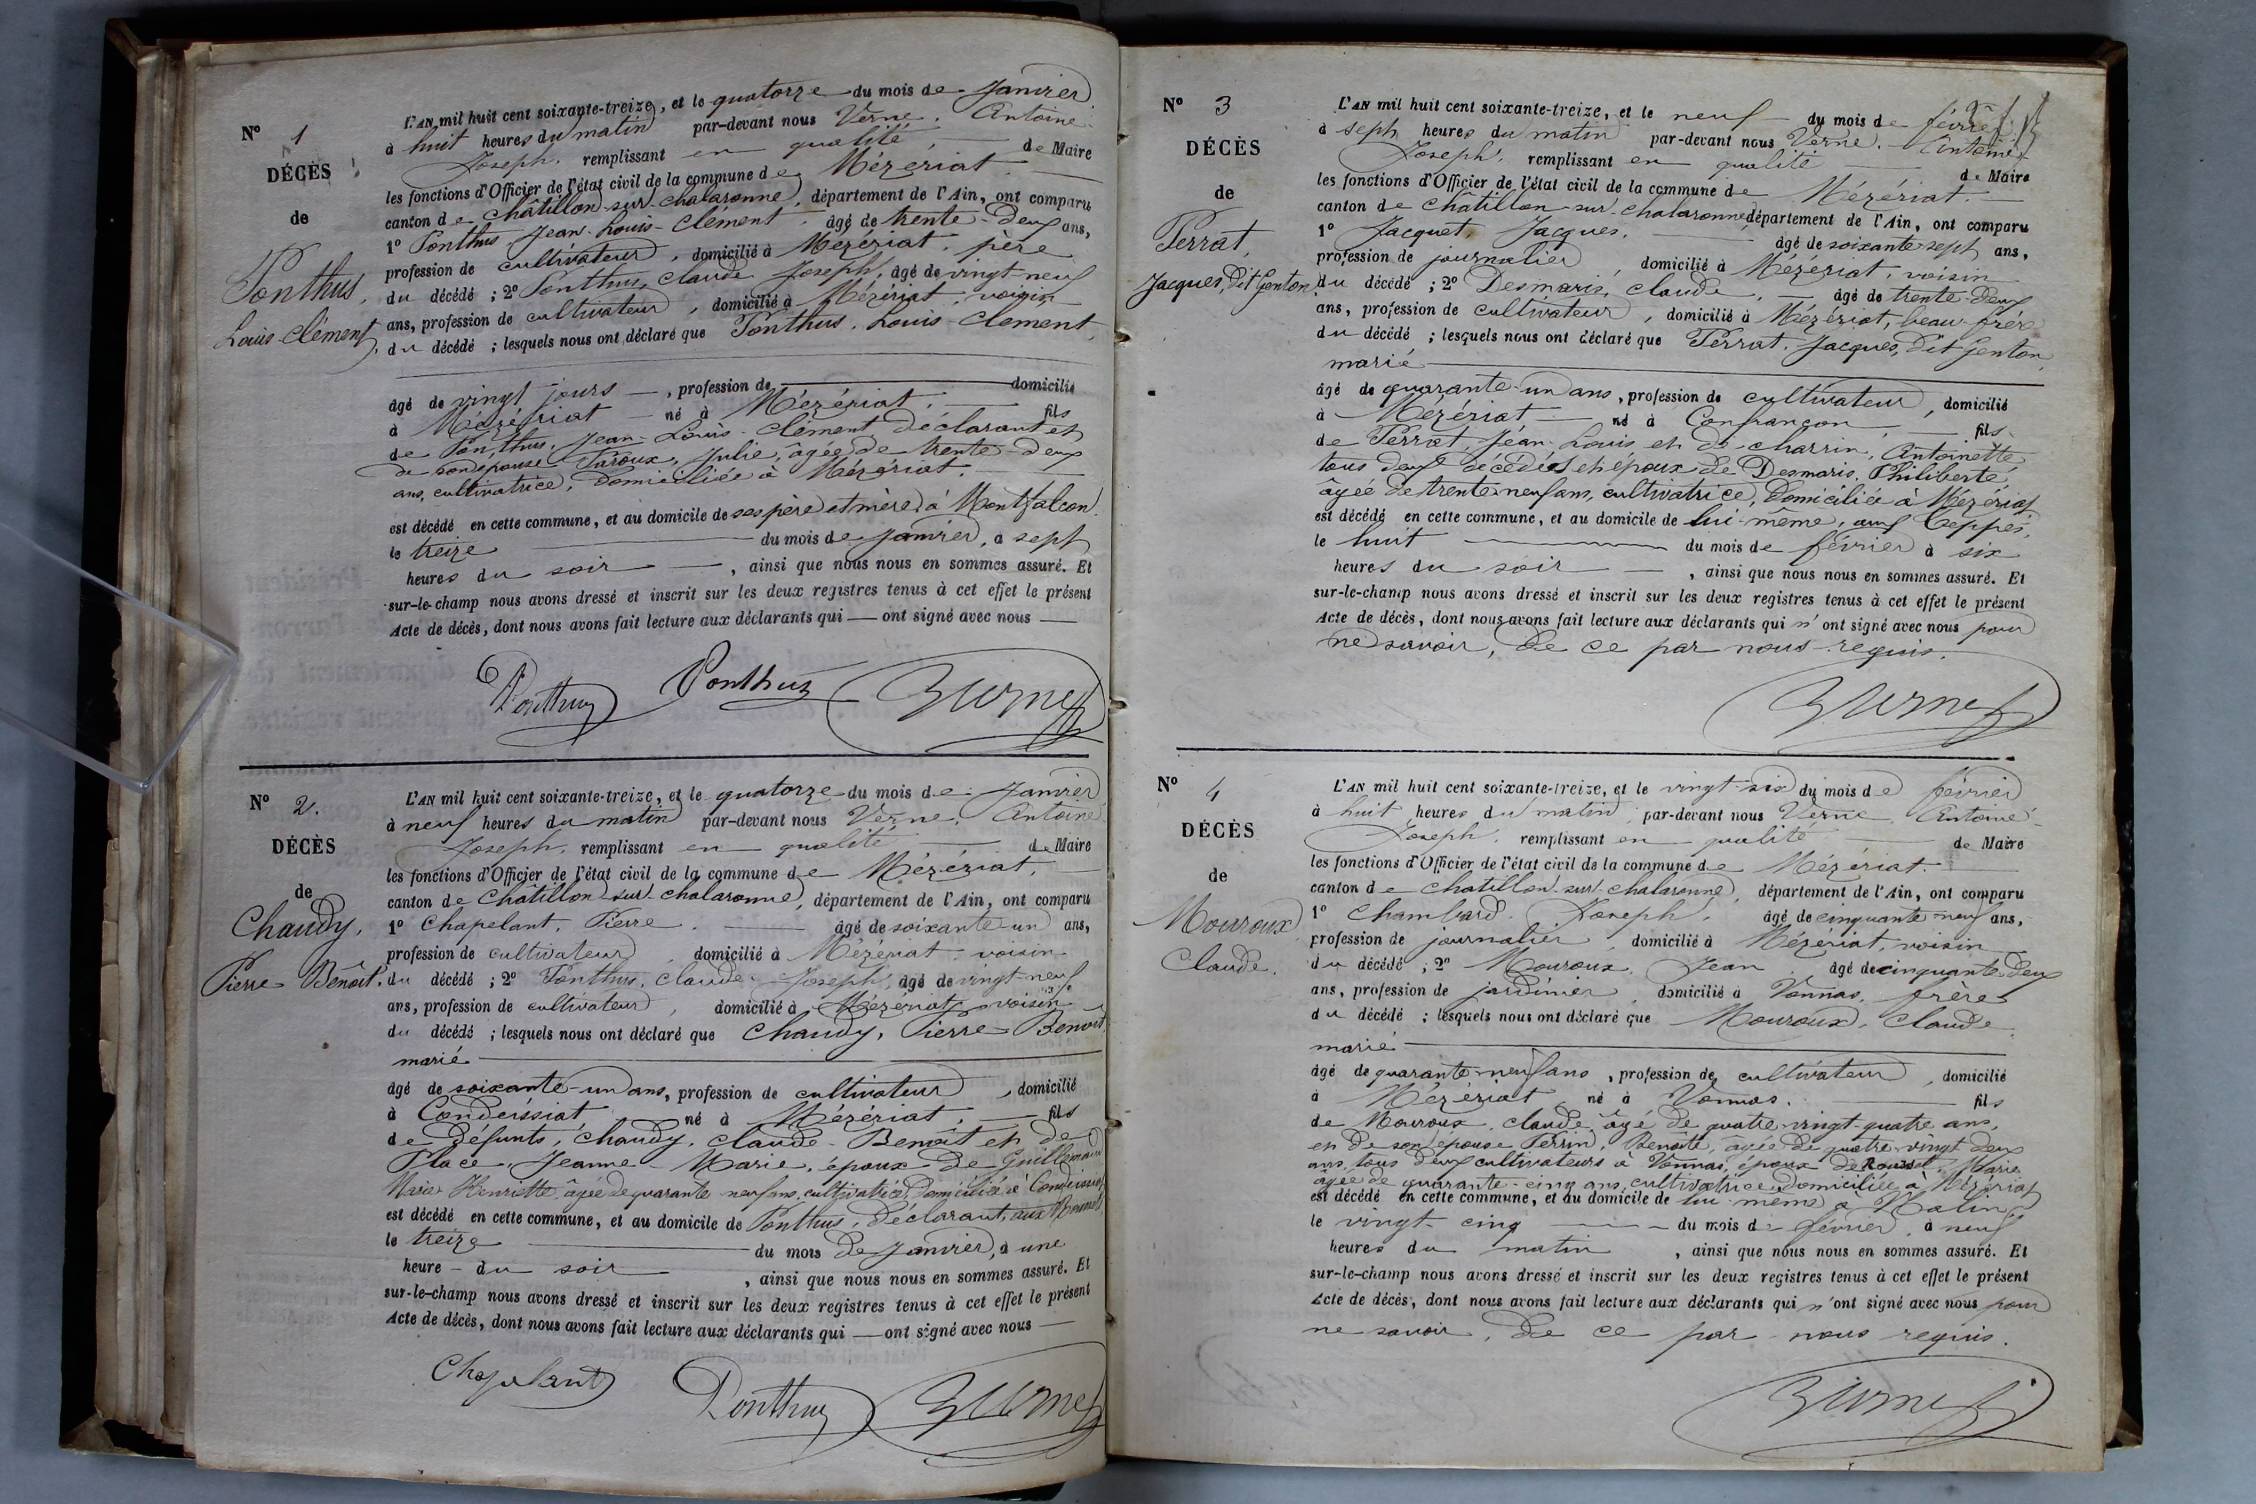 N° 1
DÉCÈS
de
Ponthus,
Louis-Clément,
L'AN mil huit cent soixante-treize, et le quatorze du mois de Janvier
à huit heures du matin par-devant nous Verne, Antoine
Joseph, remplissant en qualité de Maire
les fonctions d'Officier de l'état civil de la commune de Mézériat
canton de Châtillon-sur-chalaronne, département de l'Ain, ont comparu
1° Ponthus Jean-Louis-Clément, âgé de trente-deux ans,
profession de cultivateur, domicilié à Mézériat, père
du décédé ; 2° Ponthus, claude Joseph, âgé de vingt-neuf
ans, profession de cultivateur, domicilié à Mézériat, voisin
du décédé ; lesquels nous ont déclaré que Ponthus, Louis-Clément,
âgé de vingt jours, profession de domicilié
à Mézériat né à Mézériat, fils
de Ponthus, Jean-Louis-Clément déclarant et
de son épouse Paroux, Julie, agée de trente-deux
ans, cultivatrice, domiciliée à Mézériat.
est décédé en cette commune, et au domicile de ses père et mère à Montfalcon
le treize du mois de janvier, à sept
heures du soir, ainsi que nous nous en sommes assuré. Et
sur-le-champ nous avons dressé et inscrit sur les deux registres tenus à cet effet le présent
Acte de décès, dont nous avons fait lecture aux déclarants qui ont signé avec nous
Ponthus Ponthus Verne
N° 2.
DÉCÈS
de
Chaudy,
Pierre Benoit.
L'AN mil huit cent soixante-treize, et le quatorze du mois de Janvier
à neuf heures du matin par-devant nous Verne, Antoine
Joseph, remplissant en qualité de Maire
les fonctions d'Officier de l'état civil de la commune de Mézériat,
canton de Châtillon-sur-chalaronne, département de l'Ain, ont comparu
1° Chapelant, Pierre, âgé de soixante-un ans,
profession de cultivateur domicilié à Mézériat voisin
du décédé ; 2° Ponthus, claude Joseph, âgé de vingt neuf
ans, profession de cultivateur, domicilié à Mézériat, voisin
du décédé ; lesquels nous ont déclaré que Chaudy, Pierre-Benoît
marié
âgé de soixante-un ans, profession de cultivateur, domicilié
à Condeissiat, né à Mézériat, fils
de défunts, Chaudy, Claude-Benoît et de
Place, Jeanne-Marie, époux de Guillemaud
Marie Henriette âgée de quarante neuf ans, cultivatrice, domiciliée à Condeissiat
est décédé en cette commune, et au domicile de Ponthus, déclarant, aux
le treize du mois de janvier, à une
heure du soir, ainsi que nous nous en sommes assuré. Et
sur-le-champ nous avons dressé et inscrit sur les deux registres tenus à cet effet le présent
Acte de décès, dont nous avons fait lecture aux déclarants qui ont signé avec nous
Chapelant Ponthus Verne
N° 3
DÉCÈS
de
Perrat,
Jacques, dit Genton
L'AN mil huit cent soixante-treize, et le neuf du mois de février
à sept heures du matin par-devant nous Verne, Antoine
Joseph, remplissant en qualité de Maire
les fonctions d'Officier de l'état civil de la commune de Mézériat.
canton de Châtillon-sur-chalaronne département de l'Ain, ont comparu
1° Jacquet, Jacques, âgé de soixante-sept ans,
profession de journalier, domicilié à Mézériat, voisin
du décédé ; 2° Desmaris, claude, âgé de trente-deux
ans, profession de cultivateur, domicilié à Mézériat, beau-frère
du décédé ; lesquels nous ont déclaré que Perrat, Jacques, dit Genton,
marié
âgé de quarante-un ans, profession de cultivateur, domicilié
à Mézériat né à Confrançon, fils
de Perrat Jean Louis et de charrin, Antoinette
tous deux décédés et époux de Desmaris, Philiberte,
âgée de trente-neuf ans, cultivatrice, domiciliée à Mézériat
est décédé en cette commune, et au domicile de lui-même, aux Ceppes,
le huit du mois de février à six
heures du soir, ainsi que nous nous en sommes assuré. Et
sur-le-champ nous avons dressé et inscrit sur les deux registres tenus à cet effet le présent
Acte de décès, dont nous avons fait lecture aux déclarants qui n'ont signé avec nous pour
ne savoir, de ce par nous requis.
Verne
N° 4
DÉCÈS
de
Mouroux
Claude.
L'AN mil huit cent soixante-treize, et le vingt-six du mois de février
à huit heures du matin par-devant nous Verne, Antoine
Joseph, remplissant en qualité de Maire
les fonctions d'Officier de l'état civil de la commune de Mézériat.
canton de Chatillon-sur-chalaronne, département de l'Ain, ont comparu
1° Chambard, Joseph, âgé de cinquante-neuf ans,
profession de journalier, domicilié à Mézériat, voisin
du décédé ; 2° Mouroux, Jean, âgé de cinquante-deux
ans, profession de jardinier, domicilié à Vonnas, frère
du décédé ; lesquels nous ont déclaré que Mouroux, Claude,
marié
âgé de quarante-neuf ans, profession de cultivateur, domicilié
à Mézériat né à Vonnas. fils
de Mouroux, claude âgé de quatre-vingt-quatre ans,
et de son épouse Perrin, Benoite, âgée de quatre-vingt deux
ans, tous deux cultivateurs à Vonnas, époux de Rousset, Marie
âgée de quarante-cinq ans, cultivatrice domiciliée à Mézériat
est décédé en cette commune, et au domicile de lui-même à
le vingt-cinq du mois de février, à neuf
heures du matin, ainsi que nous nous en sommes assuré. Et
sur-le-champ nous avons dressé et inscrit sur les deux registres tenus à cet effet le présent
Acte de décès, dont nous avons fait lecture aux déclarants qui n'ont signé avec nous pour
ne savoir, de ce par nous requis.
Verne